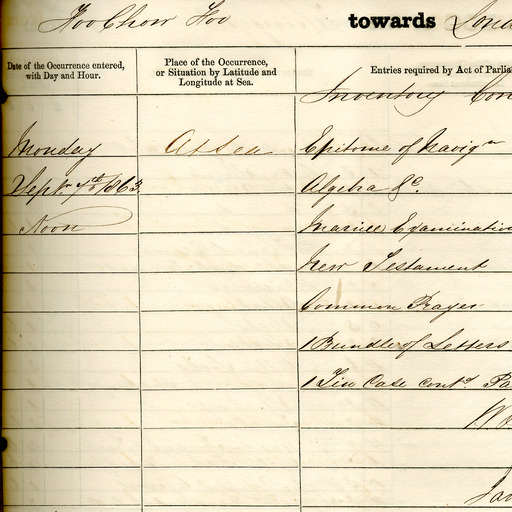 Foo Chow Foo towards Lond
Date of the Occurrence entered,
with Day and Hour.
Place of the Occurrence,
or Situation by Latitude and
Longitude at Sea.
Entries required by Act of Parlia
Inventory Con
Monday At Sea Epitome of Navign
Sept. 7th 1863 Algebra &c.
Noon Marine Examination
New Testament
Common Prayer
1 Bundle of Letters
1 Tin Case contg. Pa